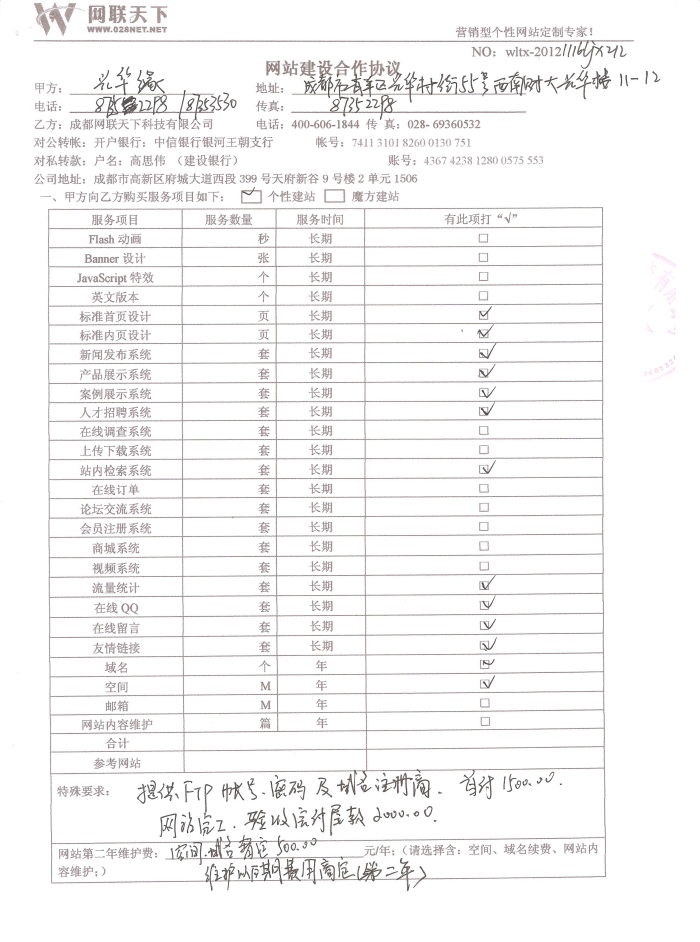 网联天下
WWW.028NET.NET
营销型个性网站定制专家！
NO: wltx-2012
网站建设合作协议
甲方：兴华缘 地址：成都市青羊区光华村街55号西南财大光华楼 11-12
电话： 2298 /87353530 传真：87352298
乙方：成都网联天下科技有限公司 电话：400-606-1844 传 真：028- 69360532
对公转帐：开户银行：中信银行银河王朝支行 帐号：7411 3101 8260 0130 751
对私转款：户名：高思伟 （建设银行） 账号：4367 4238 1280 0575 553
公司地址：成都市高新区府城大道西段 399 号天府新谷 9 号楼 2 单元 1506
一、甲方向乙方购买服务项目如下： ☑ 个性建站 □ 魔方建站
服务项目 服务数量 服务时间 有此项打“√”
Flash 动画 秒 长期 □
Banner 设计 张 长期 □
JavaScript 特效 个 长期 □
英文版本 个 长期 □
标准首页设计 页 长期 ☑
标准内页设计 页 长期 ☑
新闻发布系统 套 长期 ☑
产品展示系统 套 长期 ☑
案例展示系统 套 长期 ☑
人才招聘系统 套 长期 ☑
在线调查系统 套 长期 □
上传下载系统 套 长期 □
站内检索系统 套 长期 ☑
在线订单 套 长期 □
论坛交流系统 套 长期 □
会员注册系统 套 长期 □
商城系统 套 长期 □
视频系统 套 长期 □
流量统计 套 长期 ☑
在线 QQ 套 长期 ☑
在线留言 套 长期 ☑
友情链接 套 长期 ☑
域名 个 年 ☑
空间 M 年 ☑
邮箱 M 年 □
网站内容维护 篇 年 □
合计
参考网站
特殊要求： 提供FTP帐号、密码及域名注册商、首付1500.00.
网站完工、验收后付尾款2000.00.
网站第二年维护费：空间.域名暂定500.00 元/年；（请选择含：空间、域名续费、网站内
容维护；） 维护以后期费用商定(第二年)